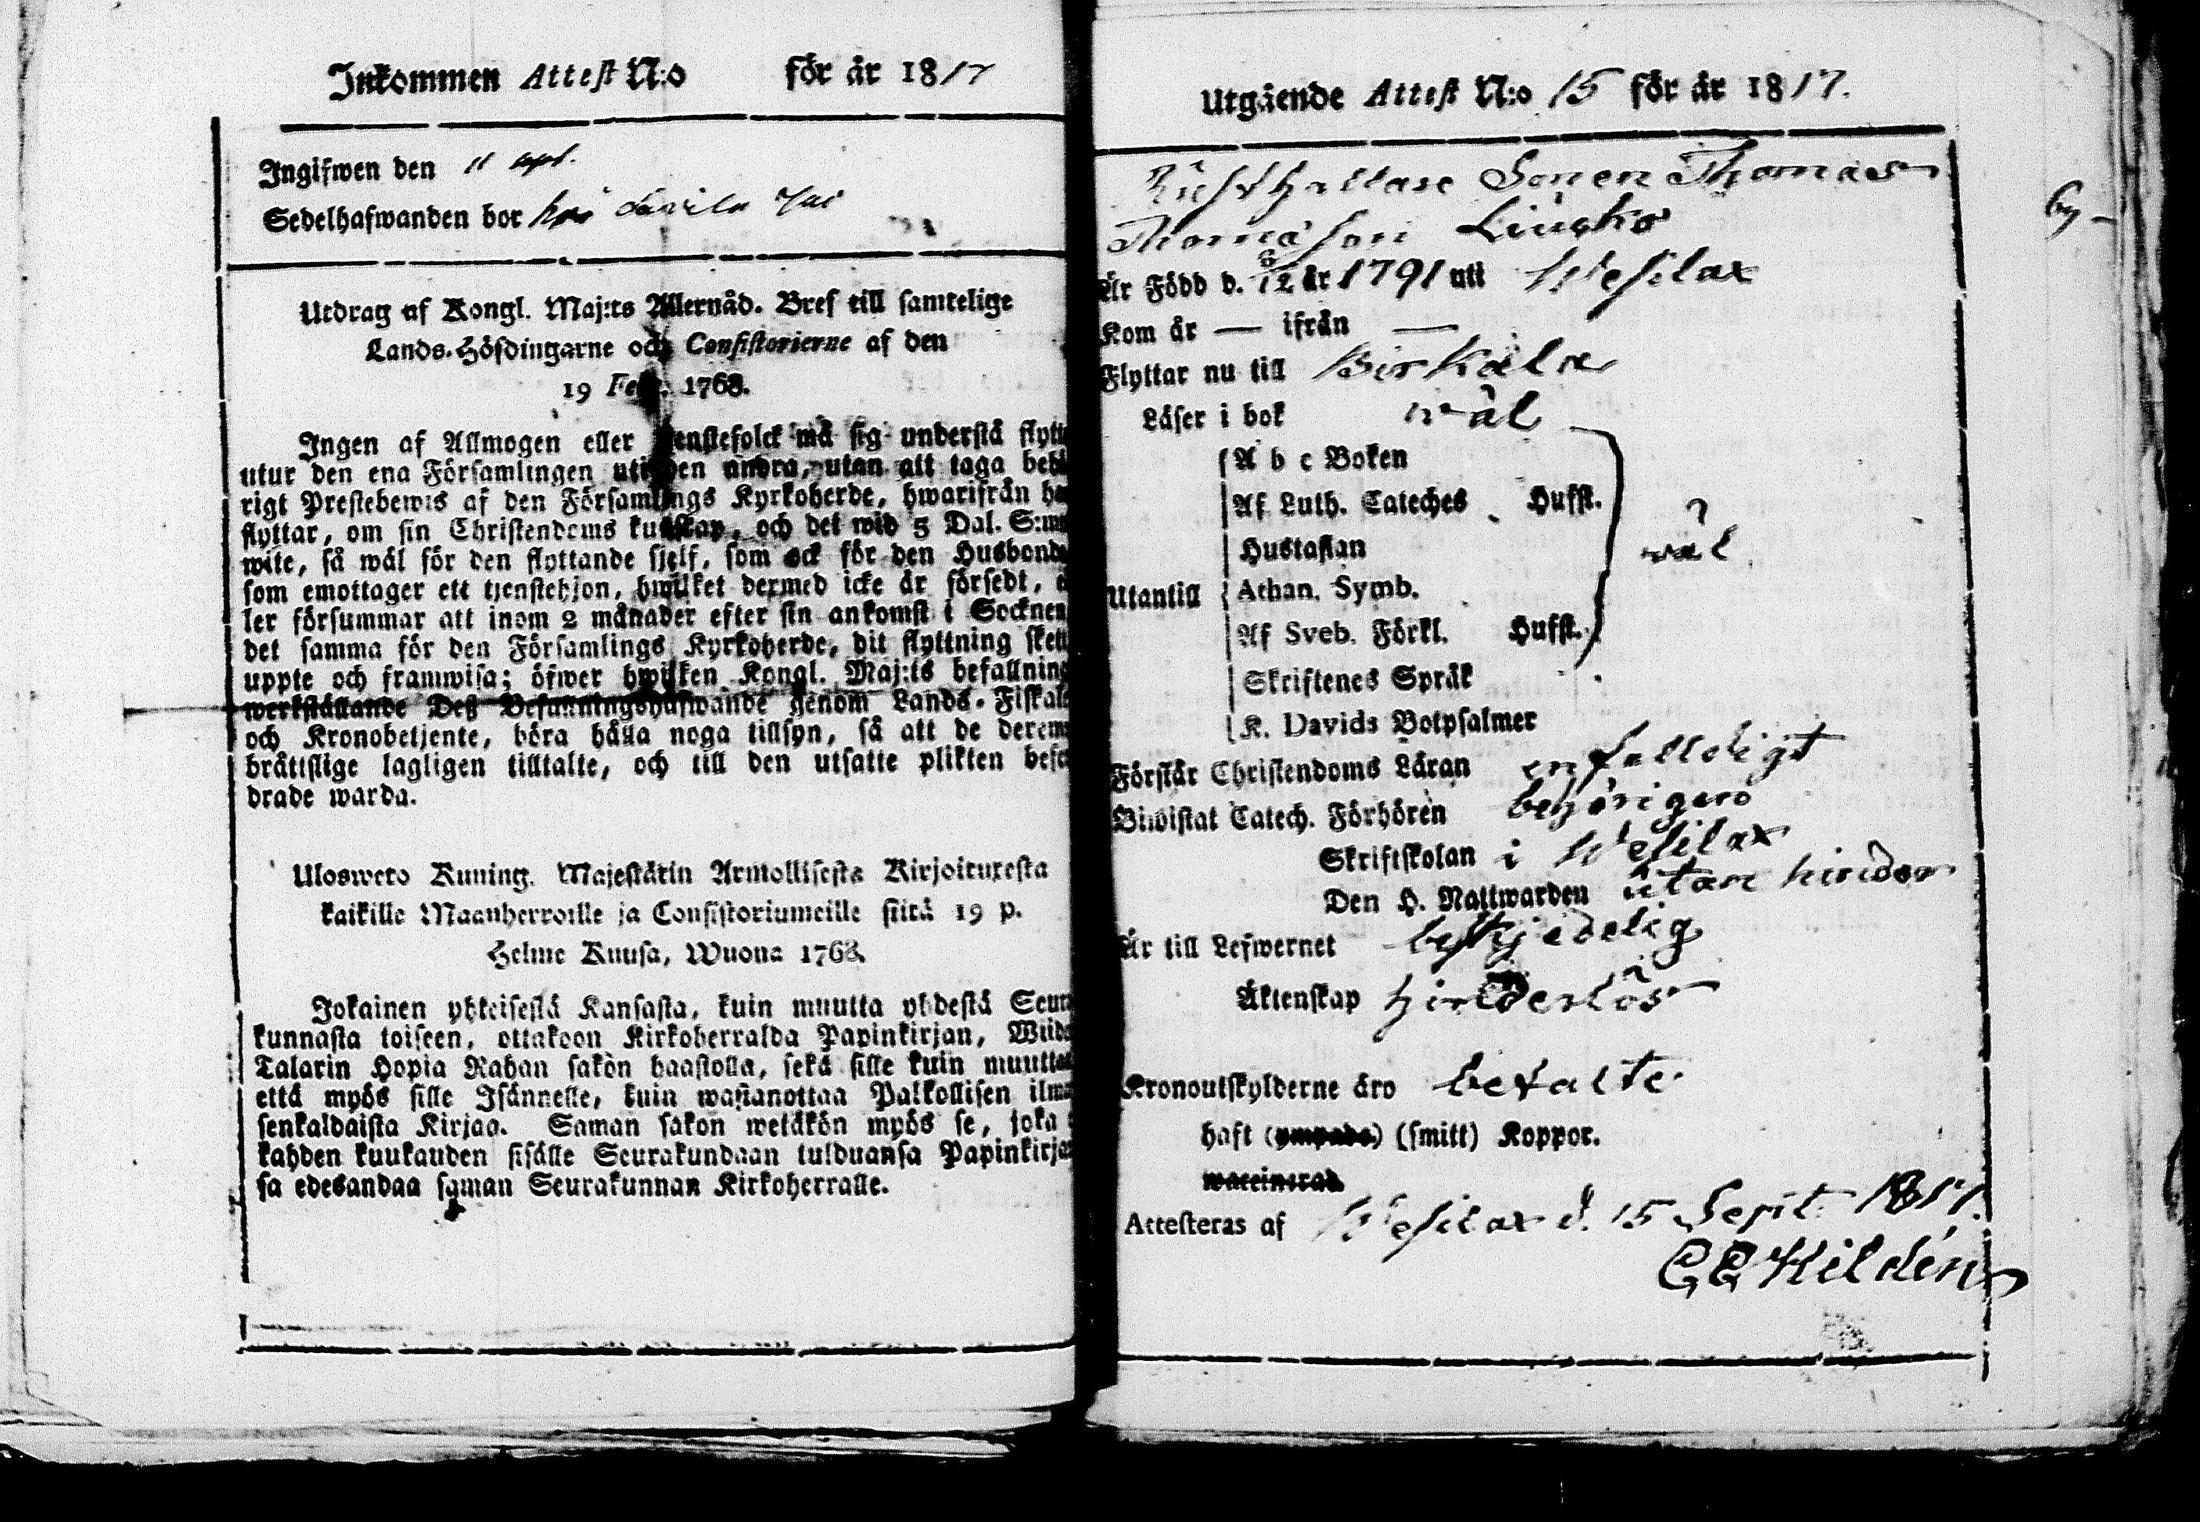 Inkommen Attest N:o för år 1817
Ingifwen den 11
Sedelhafwanden bor hos
Utdrag af Kongl. Maj:ts Allernåd. Bref till samtelige
Lands-Höfdingarne och Consistorierne af den
19 Febr. 1768.
Ingen af Allmogen eller tjenstefolck må sig understå flytt
utur den ena Församlingen uti den andra, utan att taga behö
rigt Prestebewis af den Församlings Kyrkoherde, hwarifrån ha
flyttar, om sin Christendoms kunskap, och det wid 5 Dal. S:mt
wite, så wäl för den flyttande sjelf, som ock för den Husbonde
som emottager ett tjenstehjon, hwilket dermed icke är försedt, e
ler försummar att inom 2 månader efter sin ankomst i Socknen
det samma för den Församlings Kyrkoherde, dit flyttning skett
uppte och framwisa; öfwer hwilken Kongl. Maj:ts befallning
werkställande Deß Befallningshafwande genom Lands-Fiskale
och Kronobetjente, böra hålla noga tillsyn, så att de derem
brättslige lagligen tilltalte, och till den utsatte plikten befor
drade warda.
Ulosweto Kuning. Majestätin Armollisesta Kirjoituxesta
kaikille Maanherroille ja Consistoriumeille siitä 19 p.
Helme Kuusa, Wuona 1768.
Jokainen yhteisestä Kansasta, kuin muutta yhdestä Seura
kunnasta toiseen, ottakoon Kirkoherralda Papinkirjan, Wiide
Talarin Hopia Rahan sakòn haastolla, sekä sille kuin muutta
että myös sille Isännelle, kuin wastanottaa Palkollisen ilma
senkaldaista Kirjaa. Saman sakon wetäkön myös se, joka
kahden kuukauden sisälle Seurakundaan tulduansa Papinkirja
sa edesandaa saman Seurakunnan Kirkoherralle.
Utgående Attest N:o 15 för år 1817.
Rusthållare Sonen Thomas
Thomasson Liusko
by
Är Född d. 8/12 år 1791 uti Wesilax
Kom år — ifrån —
Flyttar nu till Birkala
Läser i bok wäl
A b c Boken
Af Luth. Cateches Hufst.
Hustaflan wäl
Utantill Athan. Symb.
Af Sveb. Förkl. Hufst.
Skriftenes Språk
K. Davids Botpsalmer
Förstår Christendoms Läran enfalldigt
Biwistat Catech. Förhören behörigen
Skriftskolan i Wesilax
Den H. Nattwarden utan hinder
Är till Lefwernet beskjedelig
Äktenskap hinderlös
Kronoutskylderne äro betalte
haft (ympade) (smitt) Koppor.
waccinerad.
Attesteras af Wesilax d. 15 Sept. 1817.
Hildén